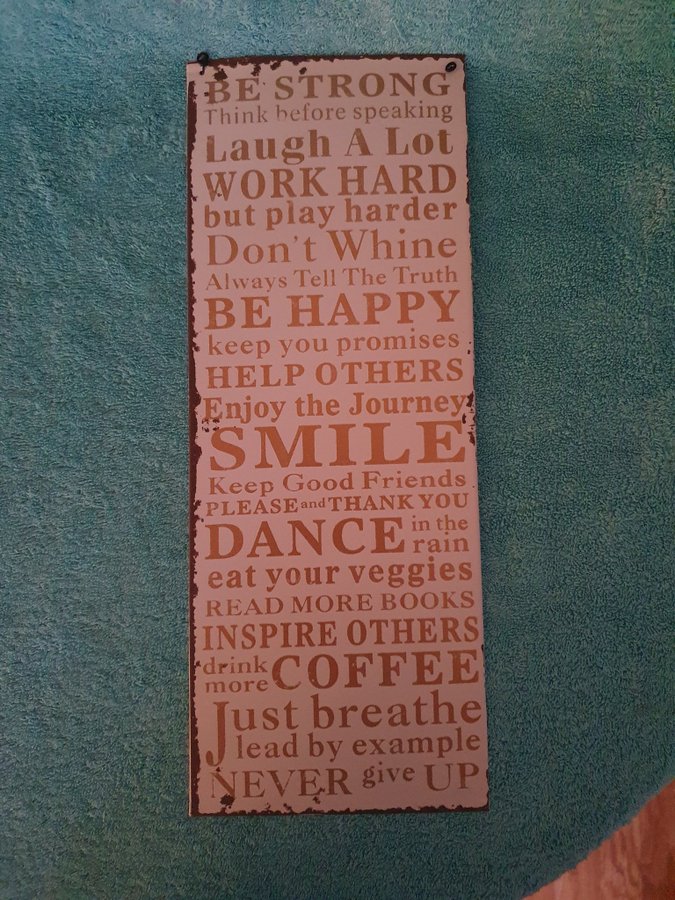 BE STRONG
Think before speaking
Laugh A Lot
WORK HARD
but play harder
Don't Whine
Always Tell The Truth
BE HAPPY
keep you promises
HELP OTHERS
Enjoy the Journey
SMILE
Keep Good Friends
PLEASE and THANK YOU
DANCE in the
rain
eat your veggies
READ MORE BOOKS
INSPIRE OTHERS
drink
more COFFEE
Just breathe
lead by example
NEVER give UP